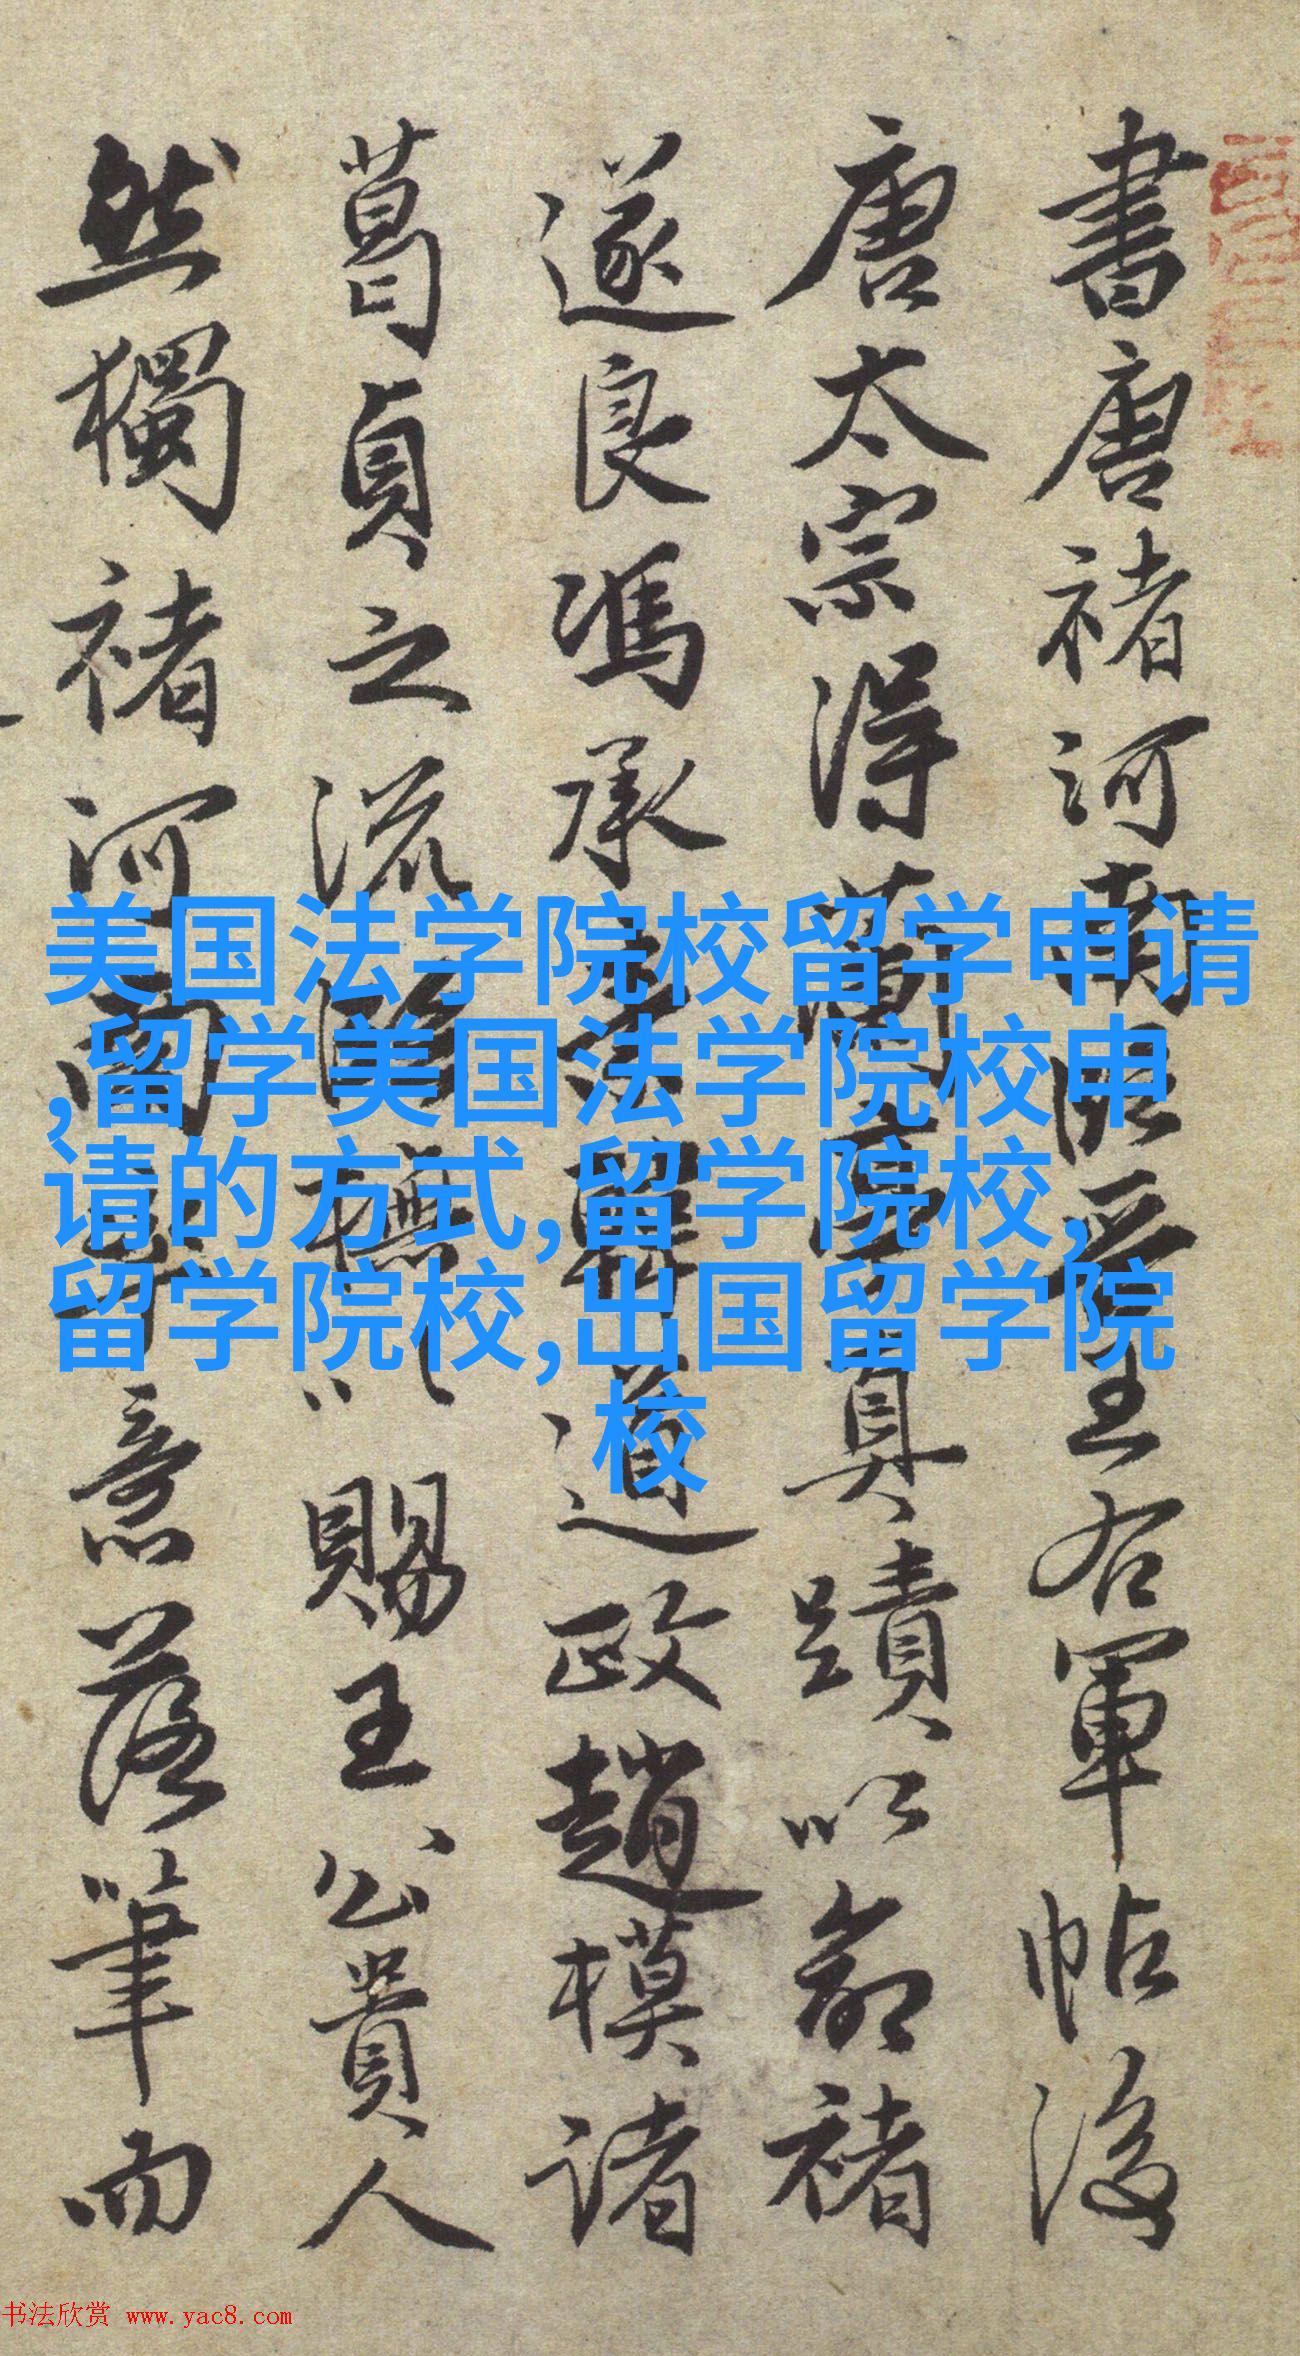 書唐褚河南臨晉王右軍帖後
唐太宗得蘭亭真蹟以命褚
遂良馮承素韓道政趙模諸
葛貞之流臨橅以賜王公貴人
然獨褚河南率意落筆而
美国法学院校留学申请
,留学美国法学院校申
请的方式,留学院校,
留学院校,出国留学院
校
书法欣赏 www.yac8.com